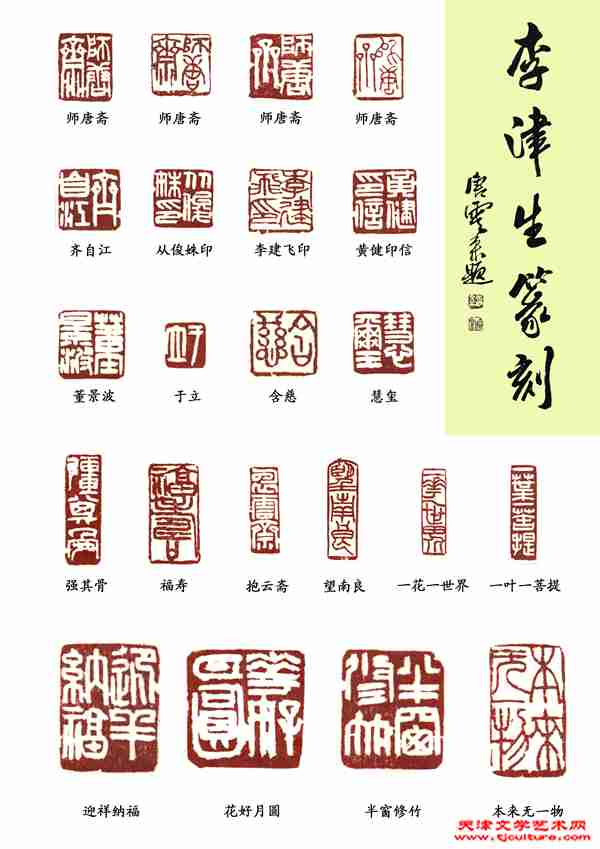 李津生篆刻
唐云来题
师唐斋
师唐斋
师唐斋
师唐斋
齐自江
从俊姝印
李建飞印
黄健印信
董景波
于立
含慈
慧玺
强其骨
福寿
抱云斋
望南良
一花一世界
一叶一菩提
迎祥纳福
花好月圆
半窗修竹
本来无一物
天津文学艺术网
www.tjculture.com